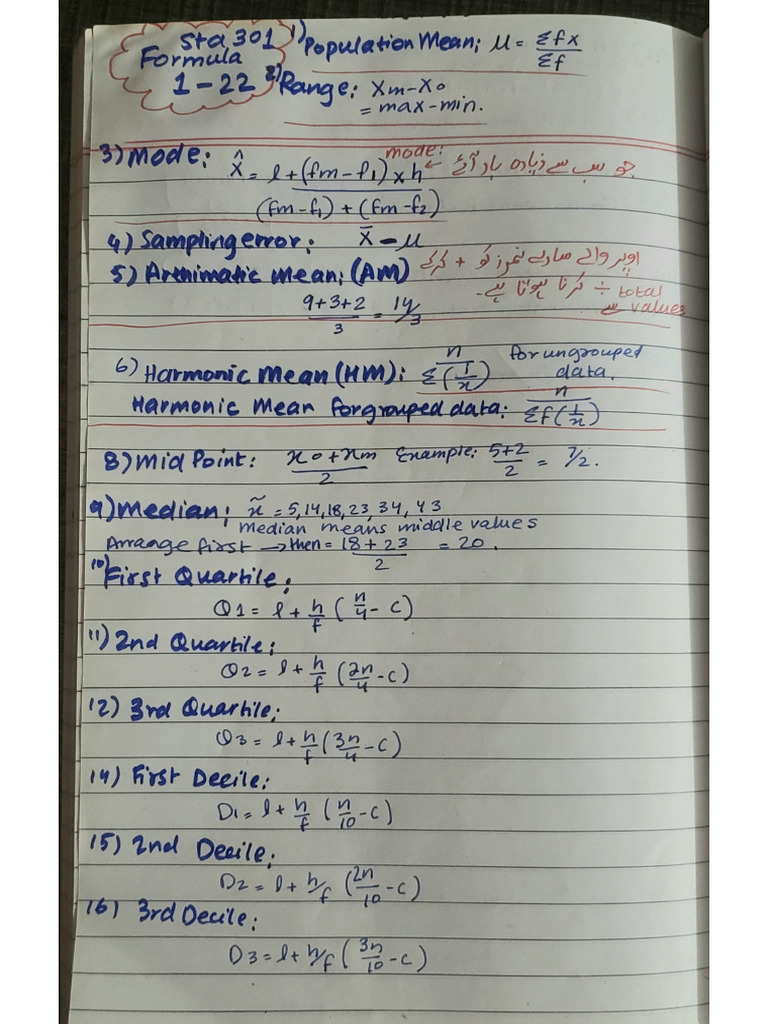 Sta 301
Formula
1-22
1) Population Mean; μ = Σfx / Σf
2) Range: Xm - X0
= max-min.
3) Mode: X̂ = l + (fm - f1) x h / (fm - f1) + (fm - f2)
mode: ← جو سب سے زیادہ بار آئے
4) Sampling error: X̄ - μ
5) Arthimatic Mean; (AM)
اوپر والے سارے نمبرز کو + کرکے
÷ کرنا ہوتا ہے۔ total values سے
9+3+2 / 3 = 14/3
6) Harmonic Mean (HM): n / Σ(1/x) for ungrouped data.
Harmonic Mean for grouped data: n / Σf(1/x)
8) Mid Point: x0 + xm / 2 Example: 5+2 / 2 = 7/2.
9) Median; x̃ = 5, 14, 18, 23, 34, 43
median means middle values
Arrange first → then = 18 + 23 / 2 = 20.
10) First Quartile;
Q1 = l + h/f (n/4 - c)
11) 2nd Quartile;
Q2 = l + h/f (2n/4 - c)
12) 3rd Quartile;
Q3 = l + h/f (3n/4 - c)
14) First Decile;
D1 = l + h/f (n/10 - c)
15) 2nd Decile;
D2 = l + h/f (2n/10 - c)
16) 3rd Decile;
D3 = l + h/f (3n/10 - c)